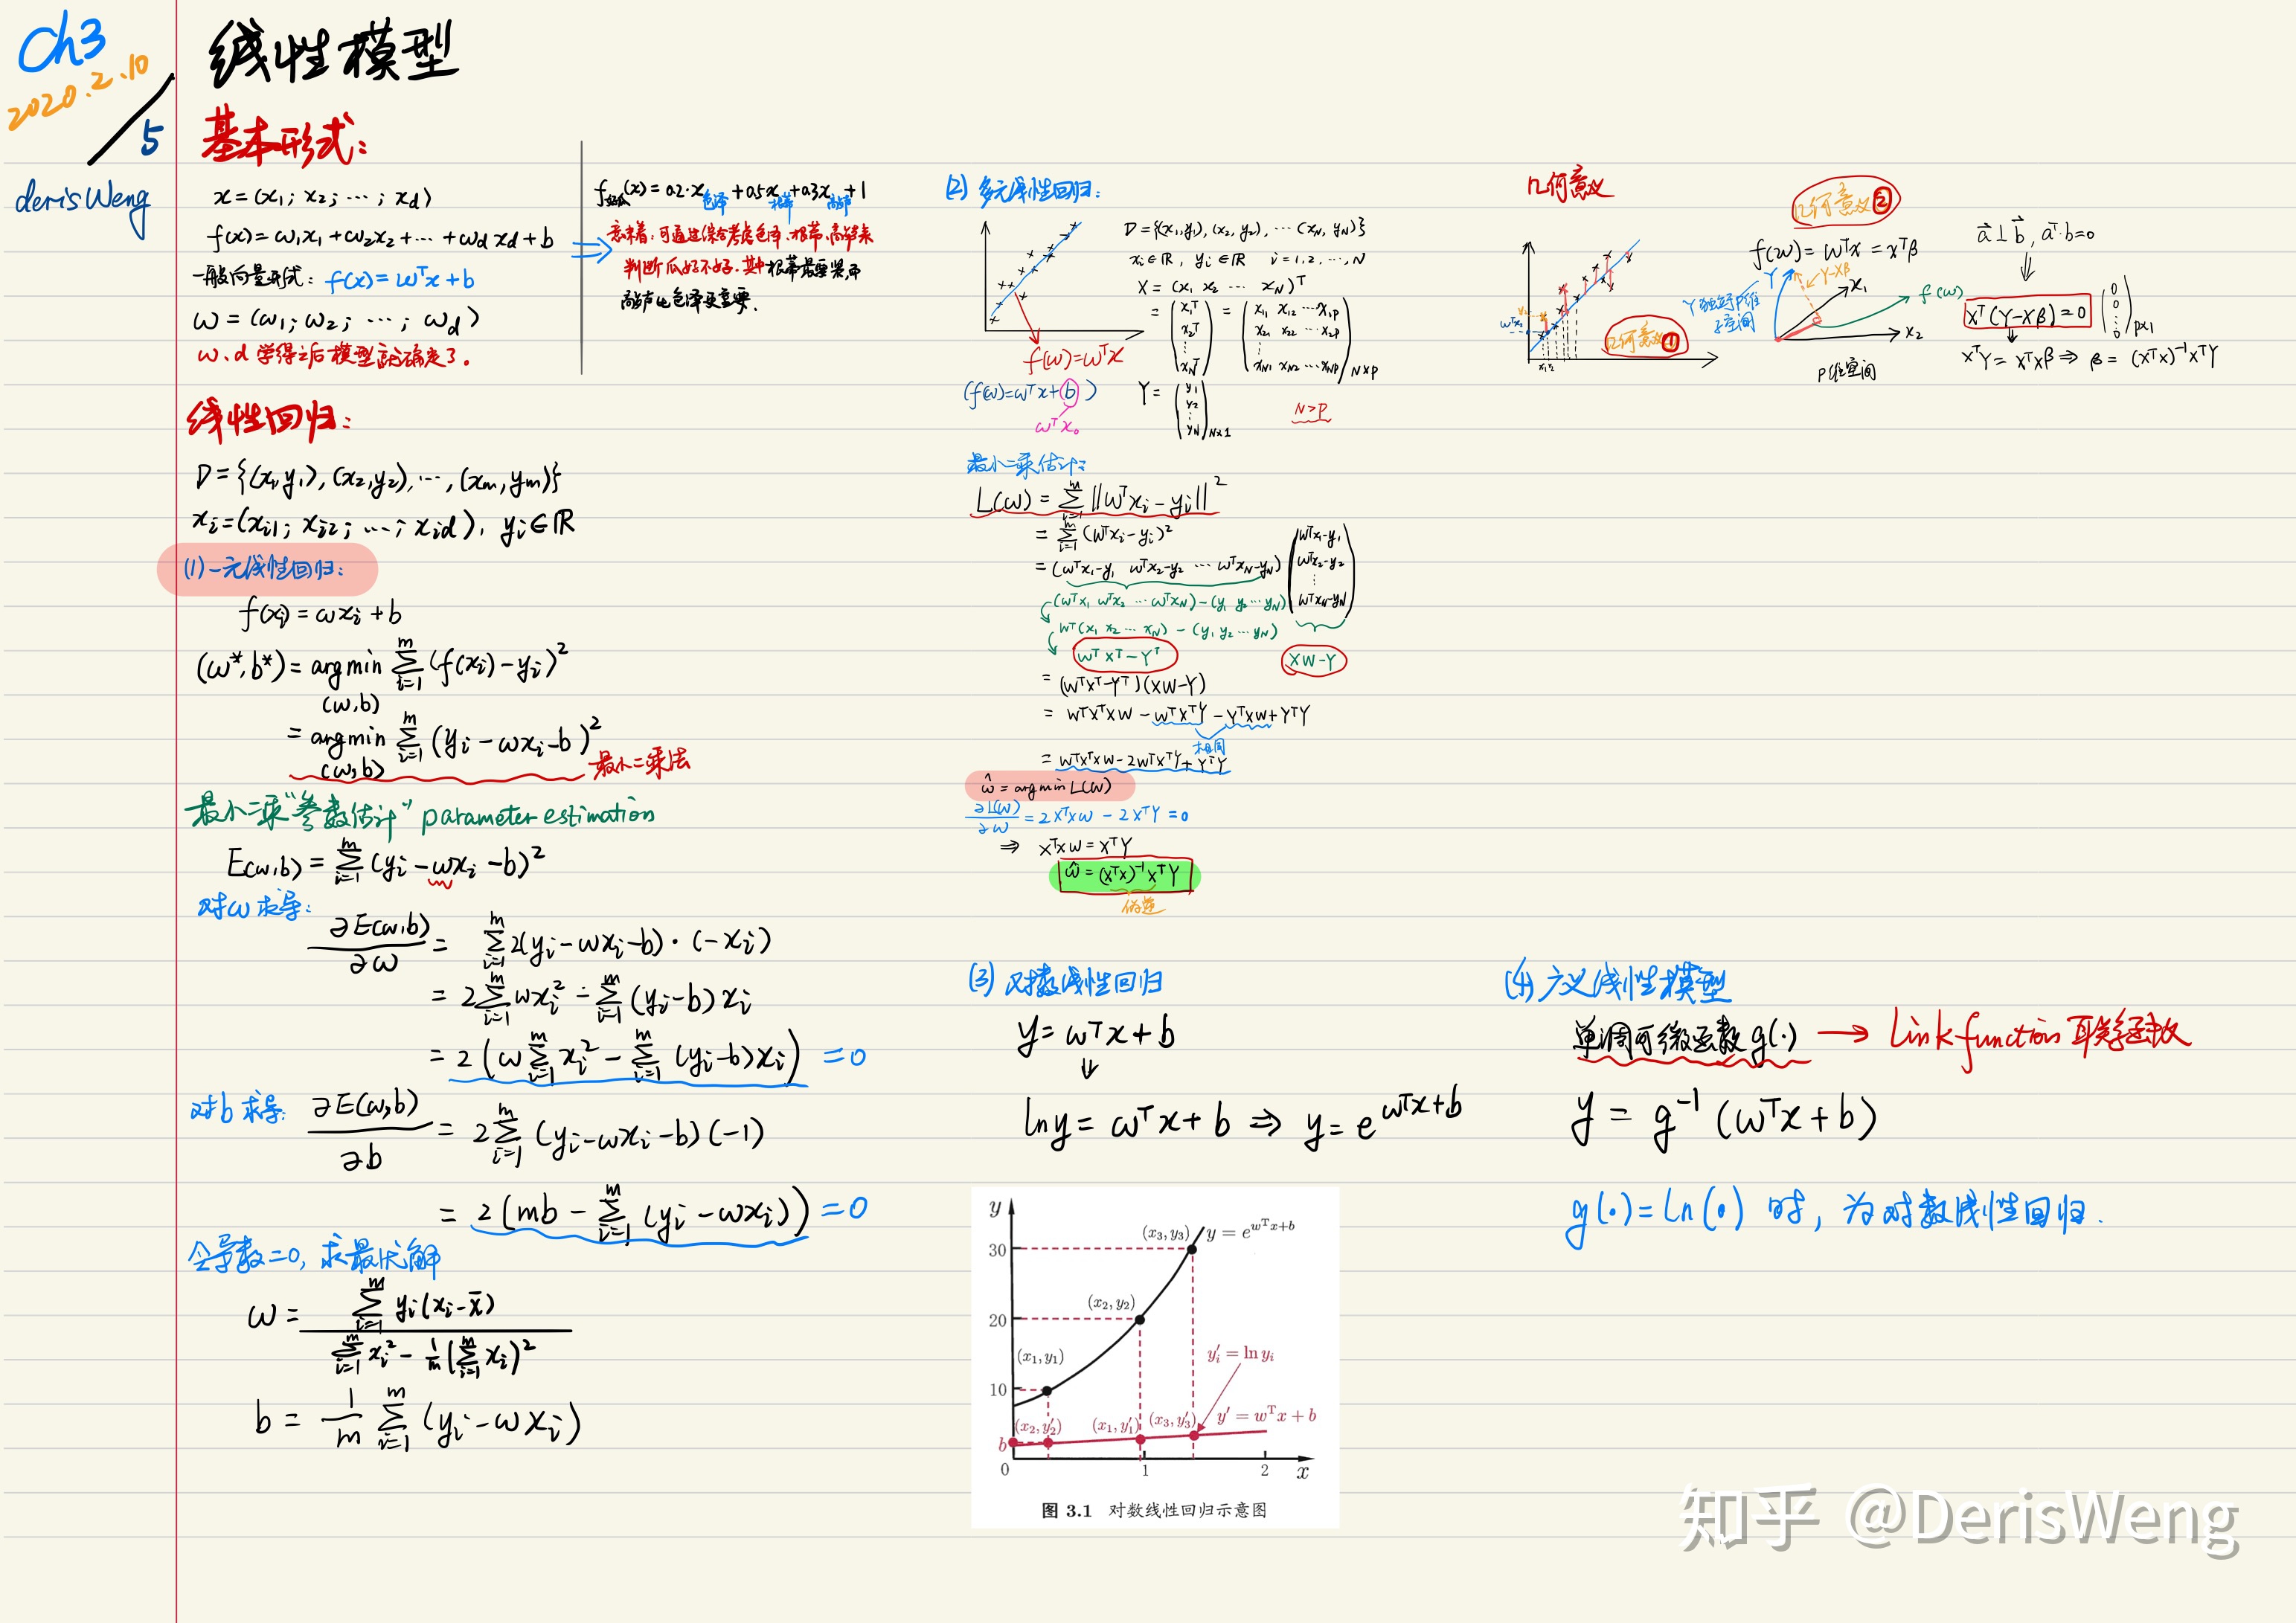 Ch3
2020.2.10
5
derisWeng
线性模型
基本形式:
x=(x1; x2; ⋯; xd)
f(x)=ω1x1+ω2x2+⋯+ωdxd+b
一般向量形式: f(x)=ωᵀx+b
ω=(ω1; ω2; ⋯; ωd)
ω、d 学得之后模型就确定了。
f好瓜(x)=0.2·x色泽+0.5x根蒂+0.3x敲声+1
意味着:可通过综合考虑色泽、根蒂、敲声来
判断瓜好不好.其中根蒂最要紧,而
敲声比色泽更重要.
线性回归:
D={(x1,y1),(x2,y2),⋯,(xm,ym)}
xi=(xi1; xi2; ⋯; xid), yi∈ℝ
(1)一元线性回归:
f(xi)=ωxi+b
(ω*,b*)=argmin(ω,b) ∑_{i=1}^m (f(xi)-yi)²
=argmin(ω,b) ∑_{i=1}^m (yi-ωxi-b)² 最小二乘法
最小二乘“参数估计” parameter estimation
E(ω,b)=∑_{i=1}^m (yi-ωxi-b)²
对ω求导:
∂E(ω,b)/∂ω = ∑_{i=1}^m 2(yi-ωxi-b)·(-xi)
= 2∑_{i=1}^m ωxi² - ∑_{i=1}^m (yi-b)xi
= 2(ω∑_{i=1}^m xi² - ∑_{i=1}^m (yi-b)xi) =0
对b求导: ∂E(ω,b)/∂b = 2∑_{i=1}^m (yi-ωxi-b)(-1)
= 2(mb-∑_{i=1}^m (yi-ωxi)) =0
令导数=0, 求最优解
ω = ∑_{i=1}^m yi(xi-x̄) / (∑_{i=1}^m xi² - 1/m(∑_{i=1}^m xi)²)
b = 1/m ∑_{i=1}^m (yi-ωxi)
(2) 多元线性回归:
f(ω)=ωᵀx
(f(ω)=ωᵀx+b)
ωᵀx0
D={(x1,y1), (x2,y2), ⋯ (xN,yN)}
xi∈ℝ, yi∈ℝ i=1,2,⋯,N
X=(x1 x2 ⋯ xN)ᵀ
= (x1ᵀ x2ᵀ ⋮ xNᵀ) = (x11 x12 ⋯ x1p x21 x22 ⋯ x2p ⋮ xN1 xN2 ⋯ xNp) N×p
Y= (y1 y2 ⋮ yN) N×1
N>P
最小二乘估计:
L(ω)=∑_{i=1}^m ‖ωᵀxi-yi‖²
=∑_{i=1}^m (ωᵀxi-yi)²
=(ωᵀx1-y1 ωᵀx2-y2 ⋯ ωᵀxN-yN) (ωᵀx1-y1 ωᵀx2-y2 ⋮ ωᵀxN-yN)
(ωᵀx1 ωᵀx2 ⋯ ωᵀxN)-(y1 y2 ⋯ yN)
Wᵀ(x1 x2 ⋯ xN)-(y1 y2 ⋯ yN)
WᵀXᵀ-Yᵀ XW-Y
= (WᵀXᵀ-Yᵀ)(XW-Y)
= WᵀXᵀXW-WᵀXᵀY-YᵀXW+YᵀY
相同
= WᵀXᵀXW-2WᵀXᵀY+YᵀY
ω̂=argmin L(ω)
∂L(ω)/∂ω=2XᵀXW-2XᵀY=0
⇒ XᵀXW=XᵀY
ω̂=(XᵀX)⁻¹XᵀY
伪逆
几何意义
ωᵀx2
x1x2
几何意义①
几何意义②
f(ω)=Wᵀx=xᵀβ
Y Y-Xβ
x1
f(ω)
x2
P维空间
a⊥b, aᵀ·b=0
⇓
Xᵀ(Y-Xβ)=0 (0 0 ⋮ 0) p×1
XᵀY=XᵀXβ⇒ β=(XᵀX)⁻¹XᵀY
(3) 对数线性回归
y=ωᵀx+b
⇓
ln y=ωᵀx+b ⇒ y=e^{ωᵀx+b}
y
30
20
10
b
0
1
2
x
(x3,y3)
y=e^{wᵀx+b}
(x2,y2)
(x1,y1)
y′i=ln yi
(x2,y′2)
(x1,y′1)
(x3,y′3)
y′=wᵀx+b
图 3.1 对数线性回归示意图
(4) 广义线性模型
单调可微函数g(·) → Link function 联系函数
y=g⁻¹(ωᵀx+b)
g(·)=ln(·) 时, 为对数线性回归.
知乎 @DerisWeng